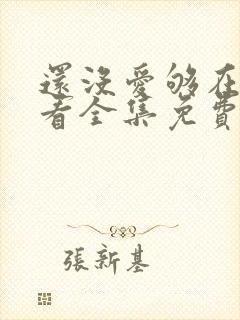 還沒愛够在
看全集免費
張新基